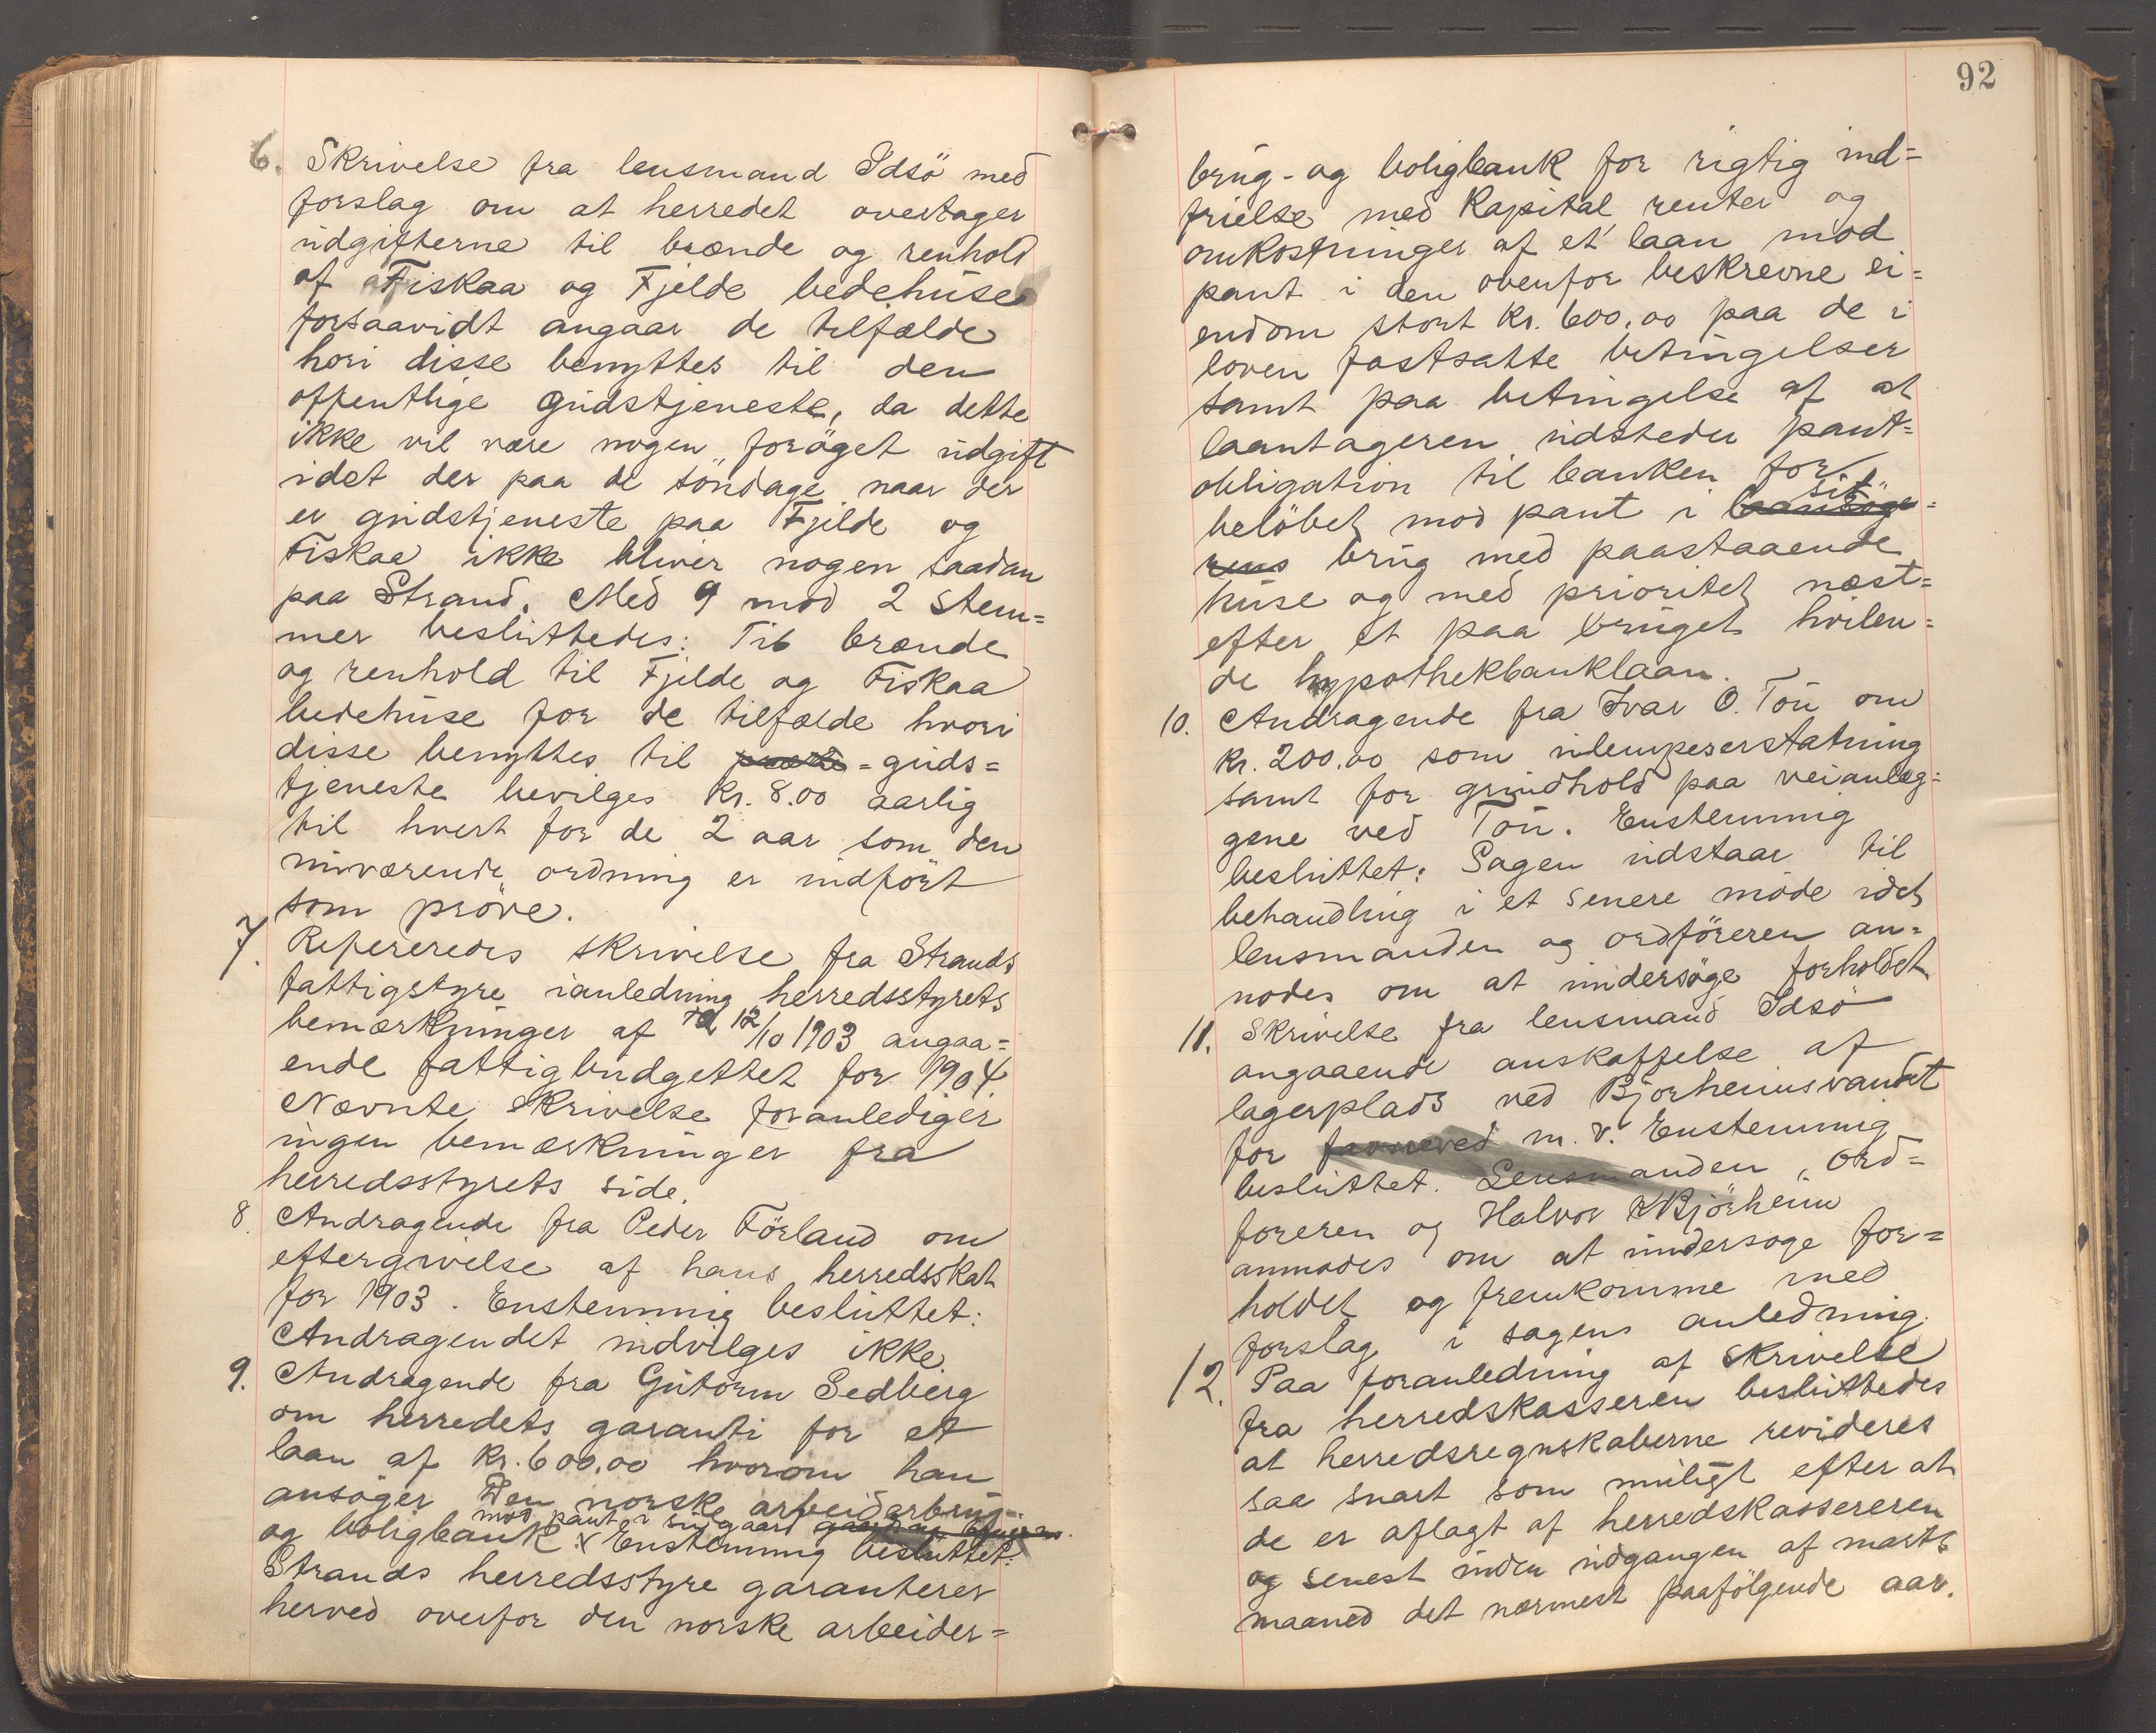 6. Skrivelse fra lensmand Idsö med
forslag om at herredet overtager
udgifterne til brænde og renhold
af Fiskaa og Fjelde bedehuse
forsaavidt angaar de tilfælde
hori disse benyttes til den
offentlige gudstjeneste, da dette
ikke vil være nogen forøget udgift
idet der paa de söndage naar der
er gudstjeneste paa Fjelde og
Fiskaa ikke bliver nogen saadan
paa Strand. Med 9 mod 2 stem=
mer besluttedes: Til brænde
og renhold til Fjelde og Fiskaa
bedehuse for de tilfælde hvori
disse benyttes til = guds=
tjeneste bevilges Kr. 8.00 aarlig
til hvert for de 2 aar som den
nuværende ordning er indført
som pröve.
7. Refereredes skrivelse fra Strands
fattigstyre ianledning herredsstyrets
bemærkninger af 12/10 1903 angaa=
ende fattigbudgettet for 1904
Nævnte skrivelse foranlediger
ingen bemærkninger fra
herredsstyrets side.
8. Andragende fra Peder Förland om
eftergivelse af hans herredsskat
for 1903. Enstemmig besluttet:
Andragendet indvilges ikke.
9. Andragende fra Gutorm Sedberg
om herredets garanti for et
laan af Kr. 600.00 hvorom han
ansøger Den norske arbeiderbrug-
mod pant i sin gaard
og boligbank. x Enstemmig besluttet:
Strands herredsstyre garanterer
herved overfor den norske arbeider=
92
brug- og boligbank for rigtig ind=
frielse med Kapital renter og
omkostninger af et laan mod
pant i den ovenfor beskrevne ei=
endom stort Kr. 600.00 paa de i
loven fastsatte betingelser
samt paa betingelse af at
laantageren udsteder pant=
obligation til banken for
sit
belöbet mod pant i laansöge=
rens brug med paastaaende
huse og med prioritet næst=
efter et paa bruget hvilen=
de hypothekbanklaan.
10. Andragende fra Ivar O. Tou om
Kr. 200.00 som ulempeerstatning
samt for grindhold paa veianlæg=
gene ved Tou. Enstemmig
besluttet: Sagen udstaar til
behandling i et senere møde idet
lensmanden og ordföreren an=
modes om at undersöge forholdet
11. Skrivelse fra lensmand Idsö
angaaende anskaffelse af
lagerplads ved Bjørheimsvandet
for favneved m. v. Enstemmig
besluttet. Lensmanden, ord=
foreren og Halvor K Bjørheim
anmodes om at undersoge for=
holdet og fremkomme med
forslag i sagens anledning.
12. Paa foranledning af skrivelse
fra herredskasseren besluttedes
at herredsregnskaberne revideres
saa snart som muligt efter at
de er aflagt af herredskassereren
og senest inden udgangen af marts
maaned det nærmest paafölgende aar.